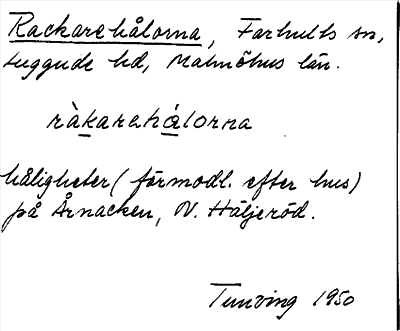 Rackarehålorna, Farhults sn,
Luggude hd, Malmöhus län.
ràkarehålorna
håligheter (förmodl. efter hus)
på Årnacken, N. Häljeröd.
Tunving 1950